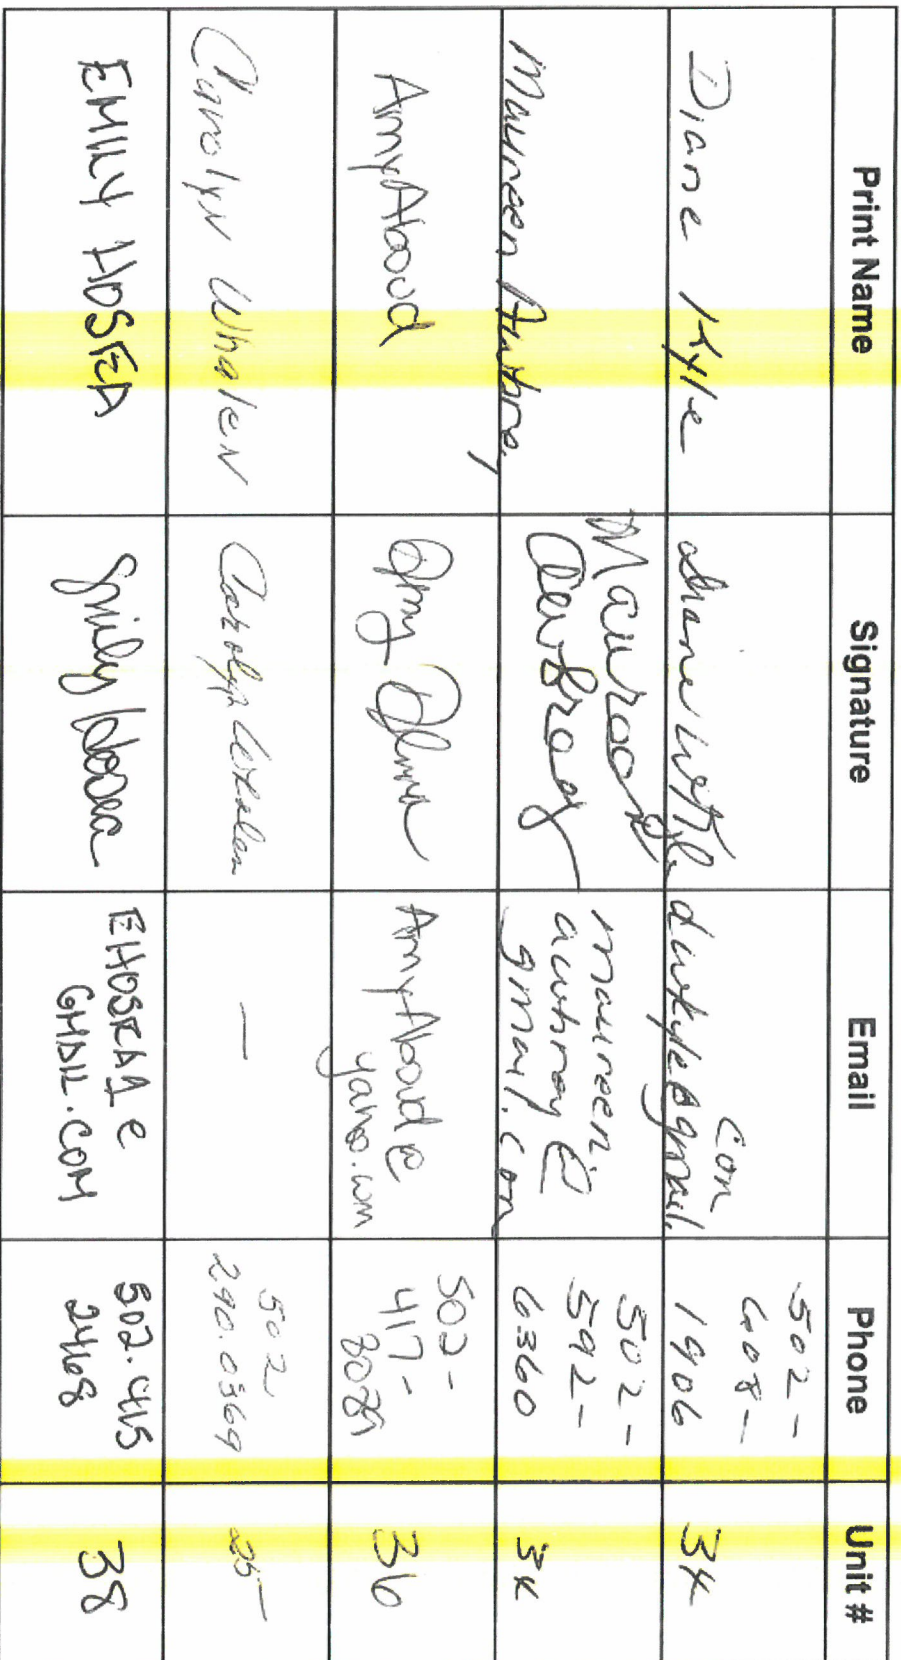 Print Name Signature Email Phone Unit #
Diane Kyle
com
dwkyle@gmail.
502-
608-
1906
34
Maureen Awbrey
Maureen
Awbrey
maureen
awbrey@
gmail.com
502-
592-
6360
34
Amy Aboud
Amy
AmyAboud@
yahoo.com
502-
417-
36
Carolyn Whalen
Carolyn Whalen
—
502
290.0369
25
EMILY HOSEA
Emily Hosea
EHOSEA1@
GMAIL.COM
502.415
2468
38